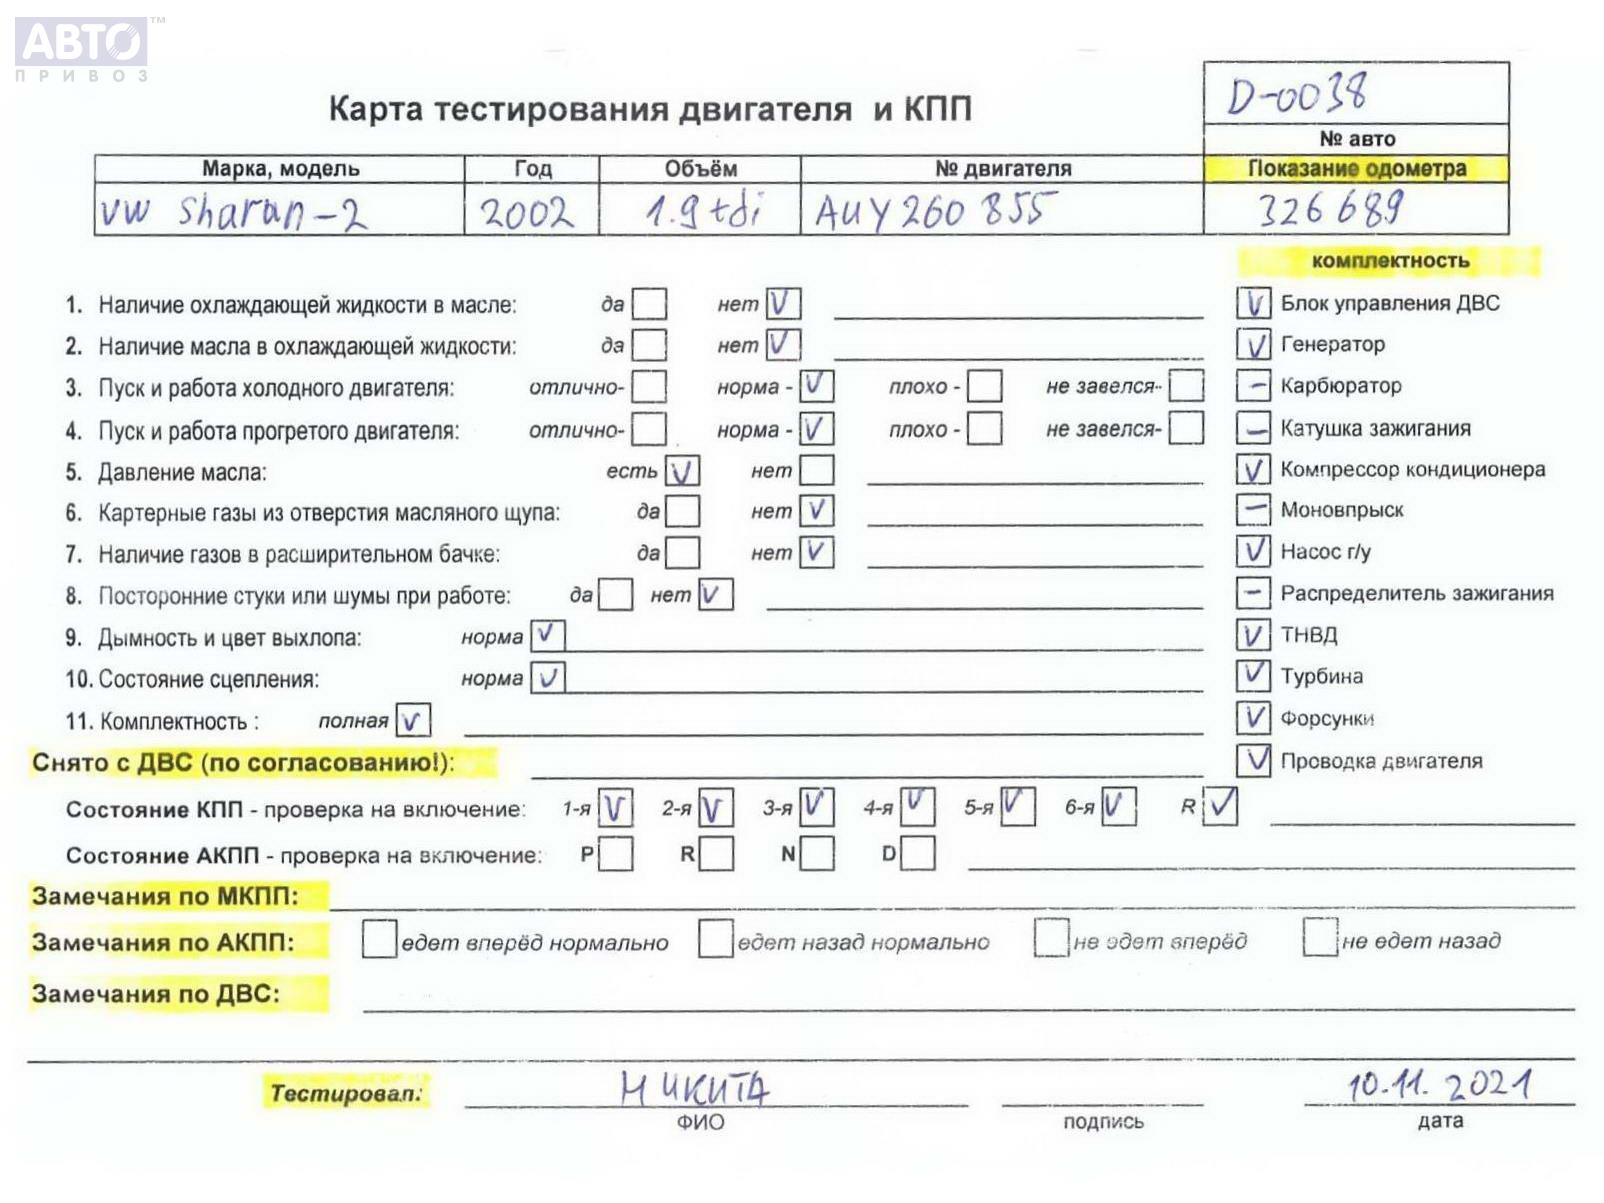 АВТО™
ПРИВОЗ
D-0038
Карта тестирования двигателя и КПП
№ авто
Марка, модель Год Объём № двигателя Показание одометра
VW Sharan-2 2002 1.9 tdi AUY260855 326689
комплектность
1. Наличие охлаждающей жидкости в масле: да нет V V Блок управления ДВС
2. Наличие масла в охлаждающей жидкости: да нет V V Генератор
3. Пуск и работа холодного двигателя: отлично- норма - V плохо - не завелся- - Карбюратор
4. Пуск и работа прогретого двигателя: отлично- норма - V плохо - не завелся- - Катушка зажигания
5. Давление масла: есть V нет V Компрессор кондиционера
6. Картерные газы из отверстия масляного щупа: да нет V - Моновпрыск
7. Наличие газов в расширительном бачке: да нет V V Насос г/у
8. Посторонние стуки или шумы при работе: да нет V - Распределитель зажигания
9. Дымность и цвет выхлопа: норма V V ТНВД
10. Состояние сцепления: норма V V Турбина
11. Комплектность : полная V V Форсунки
Снято с ДВС (по согласованию!): V Проводка двигателя
Состояние КПП - проверка на включение: 1-я V 2-я V 3-я V 4-я V 5-я V 6-я V R V
Состояние АКПП - проверка на включение: P R N D
Замечания по МКПП:
Замечания по АКПП: едет вперёд нормально едет назад нормально не едет вперёд не едет назад
Замечания по ДВС:
Тестировал: НИКИТА 10.11.2021
ФИО подпись дата